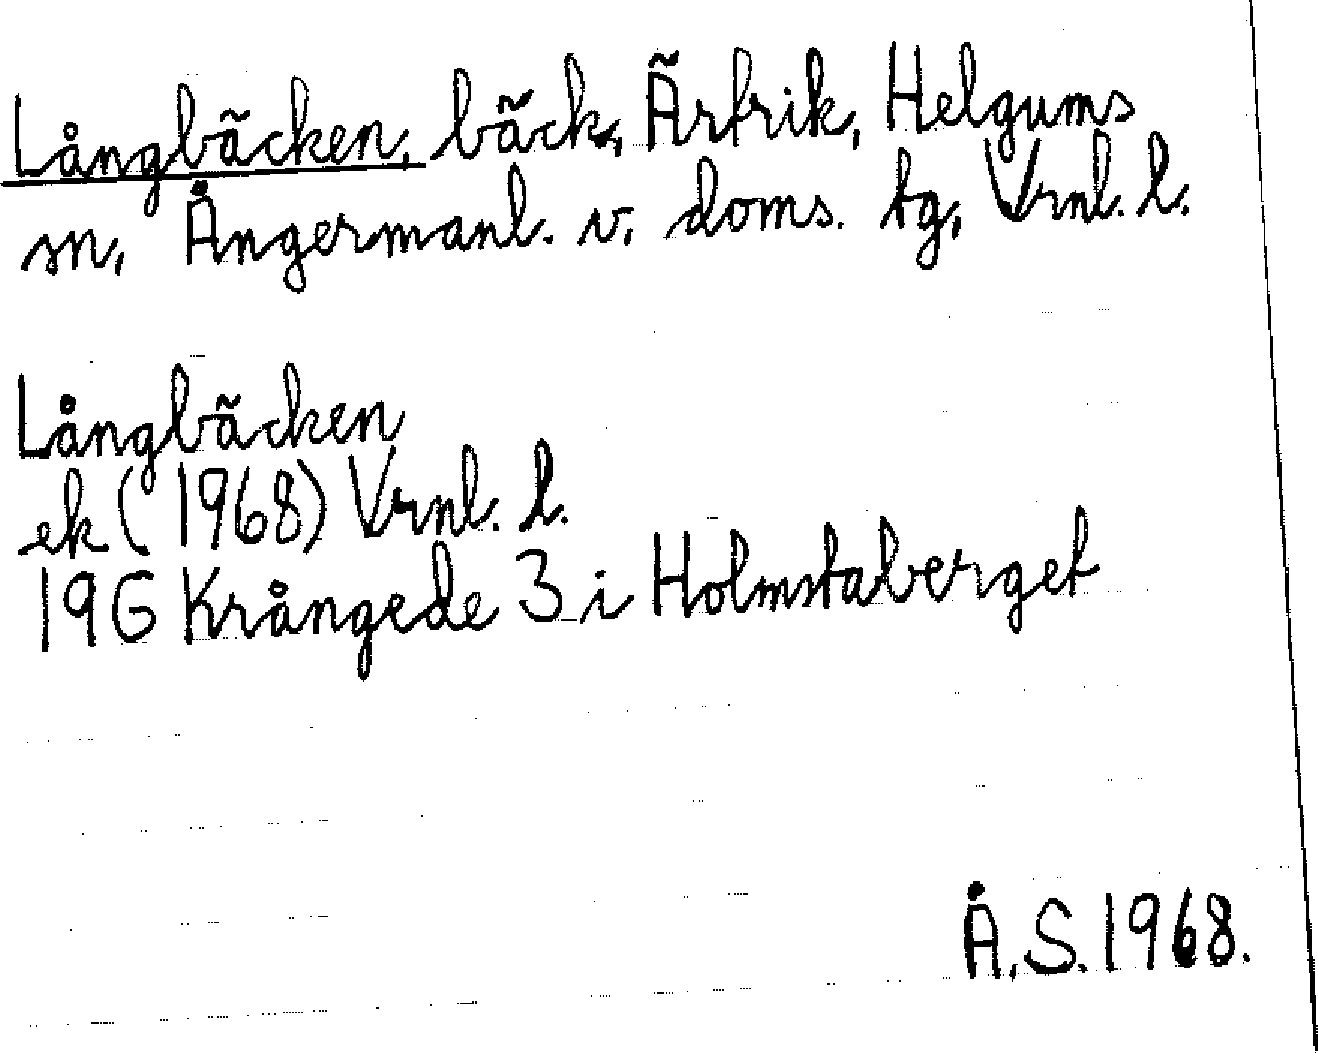 Långbäcken, bäck, Ärtrik, Helgums
sn, Ångermanl. v. doms. tg, Vrnl. l.
Långbäcken
ek (1968) Vrnl. l.
19G Krångede 3 i Holmstaberget
Å.S. 1968.